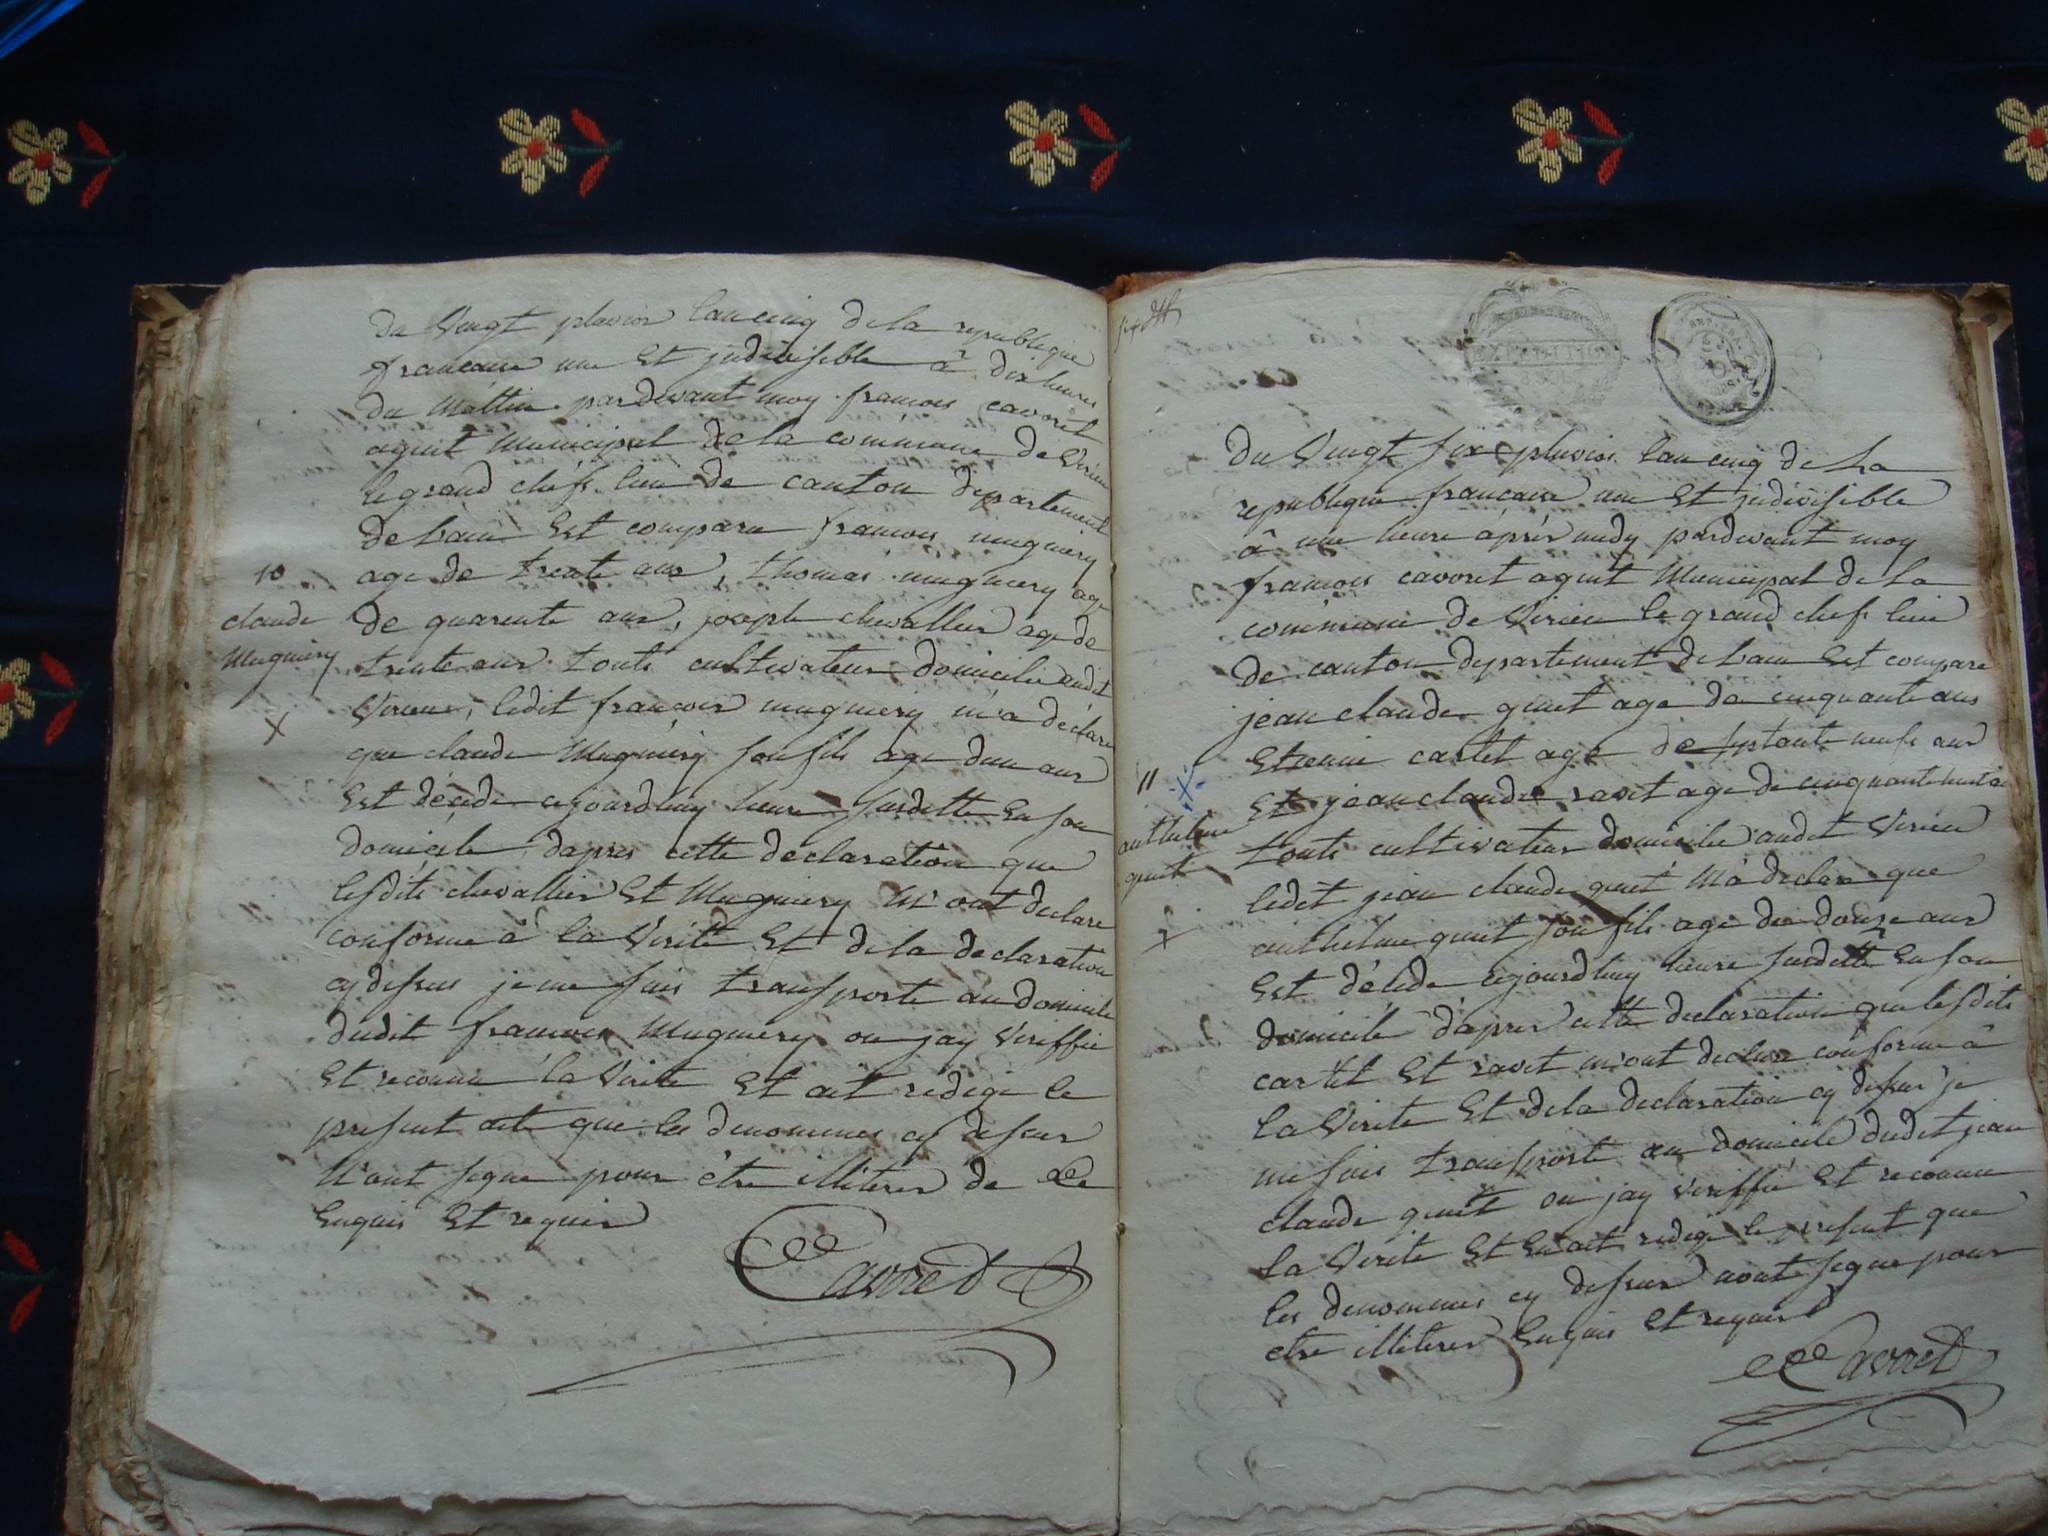 Du Vingt pluvios lan cinq de la republique
francaise une Et jndivisible â dix heures
du Mattin pardevant moy francois cavoret
agent Municipal de la commune de Virieu
le grand chefs lieu de canton departement
de lain Est compara francois mugniery
age de trente ans, thomas mugniery age
de quarente ans, joseph chevallier age de
trente ans touts cultivateur domicilie audit
Virieu, ledit francois mugniery m'a déclare
que claude Mugniery son fils age dun ans
Est décéde cejourdhuy heure susditte En son
domicile dapres cette declaration que
lesdits chevallier Et Mugniery M'ont declare
conforme â la Verité Et de la declaration
cy dessus je me suis transporte au domicile
dudit francois Mugniery ou jay Veriffie
Et reconnu la Verite Et ait redige le
present acte que les denommes cy dessus
N'ont signe pour être illiteres de ce
Enquis Et requis
Cavoret
10
claude
Mugniery
X
Du Vingt six pluvios lan cinq de La
republique francaise une Et jndivisible
â une heure après midy pardevant moy
francois cavoret agent Municipal de La
commune de Virieu le grand chefs lieu
de canton departement de lain Est compare
jean claude guiet age de cinquante ans
Etienne cartet age de septante neufs ans
Et jean claude ravet age de cinquante huit ans
touts cultivateur domicilie audit Virieu
ledit jean claude guiet Ma declare que
anthelme guiet son fils age de douze ans
Est décéde cejourdhuy heure susditte En son
domicile dapres cette declaration que lesdits
cartet Et ravet m'ont declare conforme â
la Verite Et de la declaration cy dessus je
me suis transporte au domicile dudit jean
claude guiet ou jay Veriffie Et reconnu
la Verite Et En ait redige le present que
les denommes cy dessus nont signe pour
etre illiteres Enquis Et requis
Cavoret
11
X
anthelme
guiet
X